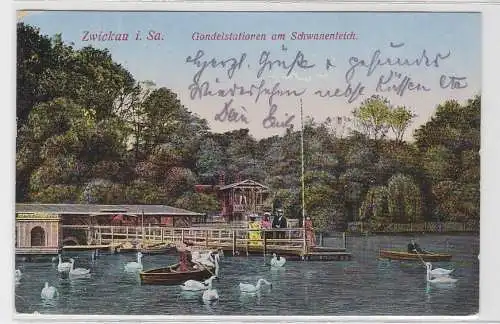 Zwickau i. Sa. Gondelstationen am Schwanenteich.
Herzl. Grüße & gesundes
Wiedersehen nebst Küssen etc
Dein